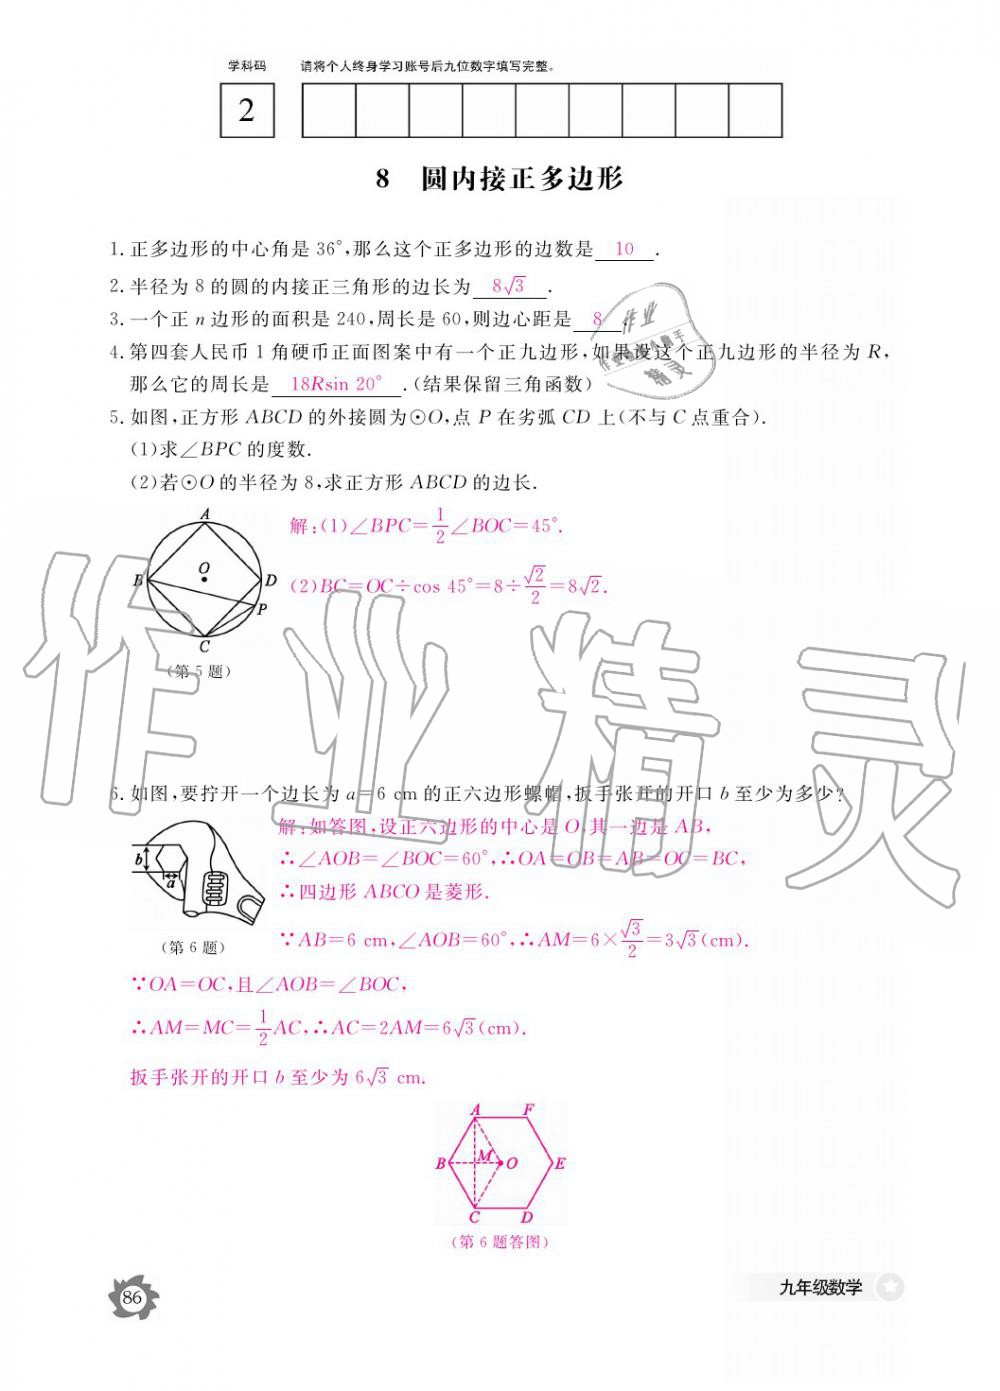 学科码 请将个人终身学习账号后九位数字填写完整。
2
8 圆内接正多边形
1. 正多边形的中心角是 36°,那么这个正多边形的边数是 10 .
2. 半径为 8 的圆的内接正三角形的边长为 8√3 .
3. 一个正 n 边形的面积是 240,周长是 60,则边心距是 8 .
4. 第四套人民币 1 角硬币正面图案中有一个正九边形,如果设这个正九边形的半径为 R,
那么它的周长是 18Rsin 20° .(结果保留三角函数)
5. 如图,正方形 ABCD 的外接圆为⊙O,点 P 在劣弧 CD 上(不与 C 点重合).
(1)求∠BPC 的度数.
(2)若⊙O 的半径为 8,求正方形 ABCD 的边长.
解:(1)∠BPC=1/2∠BOC=45°.
(2)BC=OC÷cos 45°=8÷√2/2=8√2.
A
B
O
D
P
C
(第 5 题)
6. 如图,要拧开一个边长为 a=6 cm 的正六边形螺帽,扳手张开的开口 b 至少为多少?
解:如答图,设正六边形的中心是 O,其一边是 AB,
∴∠AOB=∠BOC=60°,∴OA=OB=AB=OC=BC,
∴四边形 ABCO 是菱形.
b
a
(第 6 题)
∵AB=6 cm,∠AOB=60°,∴AM=6×√3/2=3√3(cm).
∵OA=OC,且∠AOB=∠BOC,
∴AM=MC=1/2AC,∴AC=2AM=6√3(cm).
扳手张开的开口 b 至少为 6√3 cm.
A F
B M O E
C D
(第 6 题答图)
86
九年级数学
作业精灵
作业
作业检查小助手
精灵